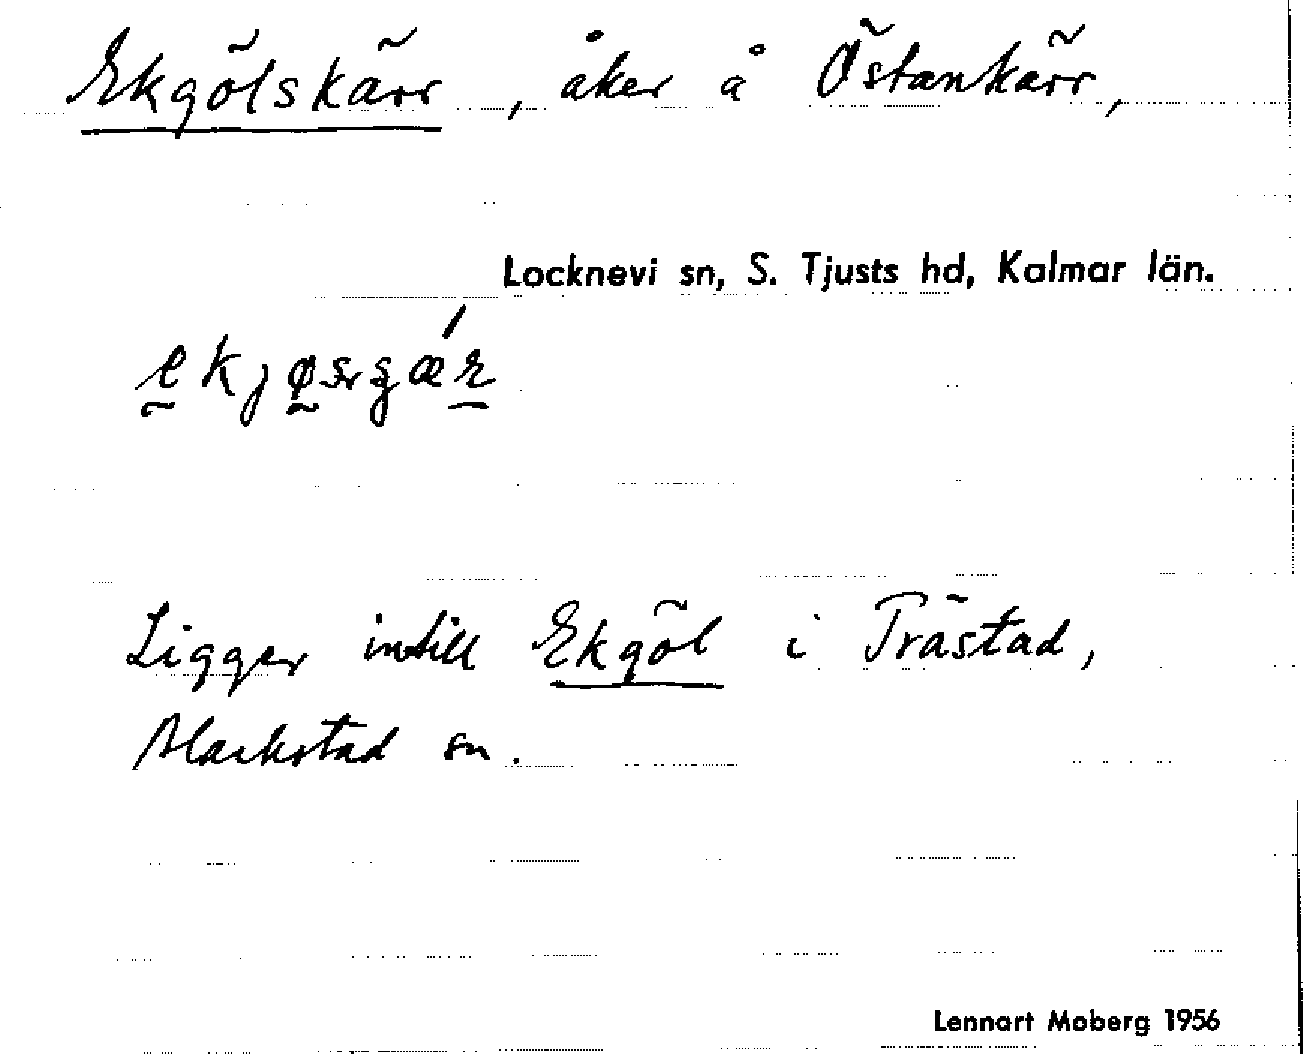 Ekgölskärr, åker å Östankärr,
Locknevi sn, S. Tjusts hd, Kalmar län.
Ligger intill Ekgöl i Trästad,
Blackstad sn.
Lennart Moberg 1956